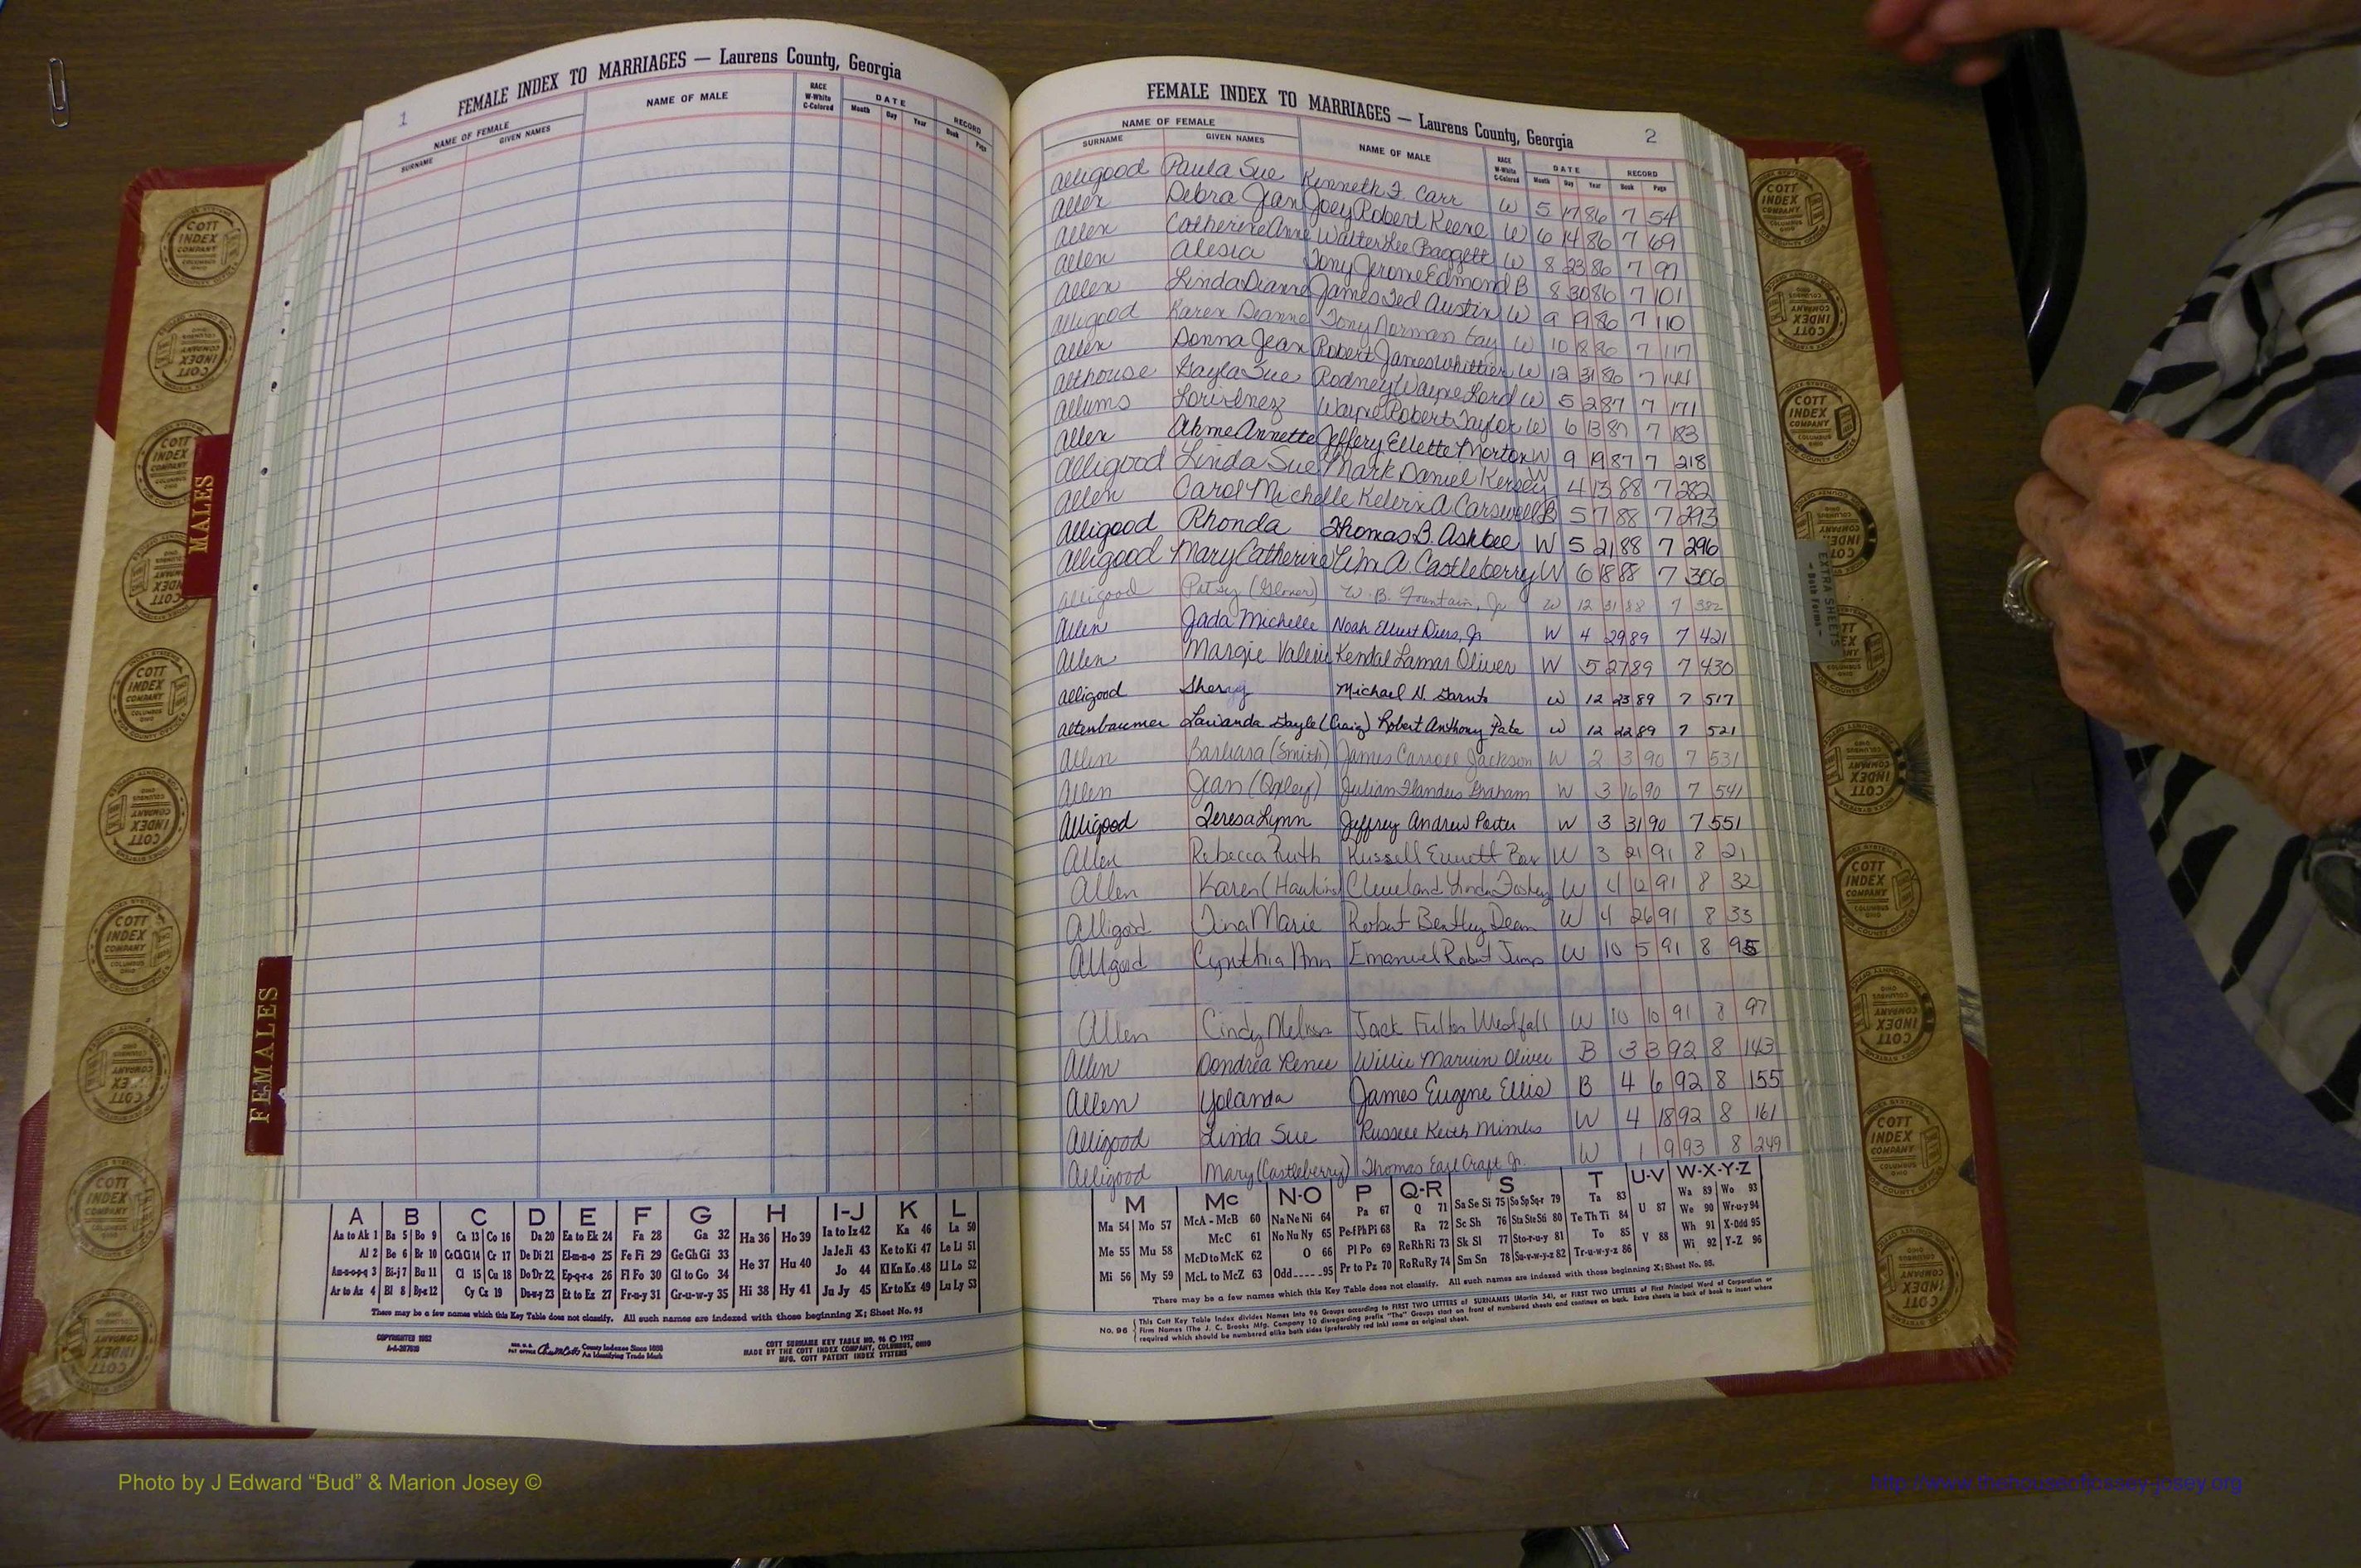 1
FEMALE INDEX TO MARRIAGES — Laurens County, Georgia
NAME OF FEMALE
SURNAME
GIVEN NAMES
NAME OF MALE
RACE
W-White
C-Colored
DATE
Month Day Year
RECORD
Book Page
FEMALE INDEX TO MARRIAGES — Laurens County, Georgia 2
NAME OF FEMALE
SURNAME
GIVEN NAMES
NAME OF MALE
RACE
W-White
C-Colored
DATE
Month Day Year
RECORD
Book Page
Alligood Paula Sue Kenneth F. Carr W 5 17 86 7 54
Allen Debra Jean Joey Robert Keene W 6 14 86 7 69
Allen Catherine Anne Walter Lee Baggett W 8 23 86 7 97
Allen Alesia Tony Jerome Edmond B 8 30 86 7 101
Allen Linda Dianne James Ted Austin W 9 9 86 7 110
Alligood Karen Deanne Tony Norman W 10 86 7 117
Allen Donna Jean Robert James Whittier W 12 31 86 7 144
Althouse Kayla Sue Rodney Wayne Lord W 5 2 87 7 171
Allums Lori Inez Wayne Robert Taylor W 6 13 87 7 183
Allen Annette Jeffery Ellette Morton W 9 19 87 7 218
Alligood Linda Sue Mark Daniel Kersey W 4 13 88 7 282
Allen Carol Michelle A Carswell B 5 7 88 7 293
Alligood Rhonda Thomas B. Ashbee W 5 21 88 7 296
Alligood Mary Catherine Wm A. Castleberry W 6 18 88 7 306
Alligood Patsy (Glover) W. B. Fountain, Jr W 12 31 88 7 382
Allen Jada Michelle Noah Elbert Jr W 4 29 89 7 421
Allen Margie Valerie Kendal Lamar Oliver W 5 27 89 7 430
Alligood Sherry Michael N. W 12 23 89 7 517
Altenbaumer Lawanda Gayle (Craig) Robert Anthony Pate W 12 22 89 7 521
Allen Barbara (Smith) James Carroll Jackson W 2 3 90 7 531
Allen Jean (Oxley) Julian Flanders Graham W 3 16 90 7 541
Alligood Teresa Lynn Jeffrey Andrew Porter W 3 31 90 7 551
Allen Rebecca Ruth Russell Emmett W 3 21 91 8 21
Allen Karen (Hawkins) Cleveland W 4 12 91 8 32
Alligood Tina Marie Robert Bentley Dean W 4 26 91 8 33
Allgood Cynthia Ann Emanuel Robert W 10 5 91 8 95
Allen Cindy Jack Fulton Westfall W 10 10 91 8 97
Allen Dondrea Renee Willie Marvin Oliver B 3 3 92 8 143
Allen Yolanda James Eugene Ellis B 4 6 92 8 155
Alligood Linda Sue Russell Keith Mimbs W 4 18 92 8 161
Alligood Mary (Castleberry) Thomas Earl Craft Jr. W 1 9 93 8 249
MALES
FEMALES
EXTRA SHEETS
A B C D E F G H I-J K L
Aa to Ak 1 Ba 5 Bo 9 Ca 13 Co 16 Da 20 Ea to Ek 24 Fa 28 Ga 32 Ha 36 Ho 39 Ia to Iz 42 Ka 46 La 50
Al 2 Be 6 Br 10 Ce Ch Ci 14 Cr 17 De Di 21 El-m-n-o 25 Fe Fi 29 Ge Gh Gi 33 He 37 Hu 40 Ja Je Ji 43 Ke to Ki 47 Le Li 51
Am-n-o-p-q 3 Bi-j 7 Bu 11 Cl 15 Cu 18 Do Dr 22 Ep-q-r-s 26 Fl Fo 30 Gl to Go 34 Hi 38 Hy 41 Jo 44 Kl Kn Ko 48 Ll Lo 52
Ar to Az 4 Bl 8 By-z 12 Cy Cz 19 Du-w-y 23 Et to Ez 27 Fr-u-y 31 Gr-u-w-y 35 Ju Jy 45 Kr to Kz 49 Lu Ly 53
There may be a few names which this Key Table does not classify. All such names are indexed with those beginning X; Sheet No. 95
COPYRIGHTED 1952
County Indexes Since 1888
An Identifying Trade Mark
COTT SURNAME KEY TABLE NO. 96 © 1952
MADE BY THE COTT INDEX COMPANY, COLUMBUS, OHIO
MFG. COTT PATENT INDEX SYSTEMS
M Mc N-O P Q-R S T U-V W-X-Y-Z
Ma 54 Mo 57 McA - McB 60 Na Ne Ni 64 Pa 67 Q 71 Sa Se Si 75 So Sp Sq-r 79 Ta 83 U 87 Wa 89 Wo 93
Me 55 Mu 58 McC 61 No Nu Ny 65 Pe-f Ph Pi 68 Ra 72 Sc Sh 76 Sta Ste Sti 80 Te Th Ti 84 V 88 We 90 Wr-u-y 94
Mi 56 My 59 McD to McK 62 O 66 Pl Po 69 Re Rh Ri 73 Sk Sl 77 Sto-r-u-y 81 To 85 Wh 91 X-Odd 95
McL to McZ 63 Odd 95 Pr to Pz 70 Ro Ru Ry 74 Sm Sn 78 Su-v-w-y-z 82 Tr-u-w-y-z 86 Wi 92 Y-Z 96
There may be a few names which this Key Table does not classify. All such names are indexed with those beginning X; Sheet No. 95.
No. 96
This Cott Key Table Index divides Names into 96 Groups according to FIRST TWO LETTERS of SURNAMES (Martin 54), or FIRST TWO LETTERS of First Principal Word of Corporation or
Firm Names (The J. C. Brooks Mfg. Company 10 disregarding prefix "The" Groups start on front of numbered sheets and continue on back. Extra sheets in back of book to insert where
required which should be numbered alike both sides (preferably red ink) same as original sheet.
COTT
INDEX
COMPANY
COLUMBUS
OHIO
Photo by J Edward “Bud” & Marion Josey ©
http://www.thehouseofjossey-josey.org